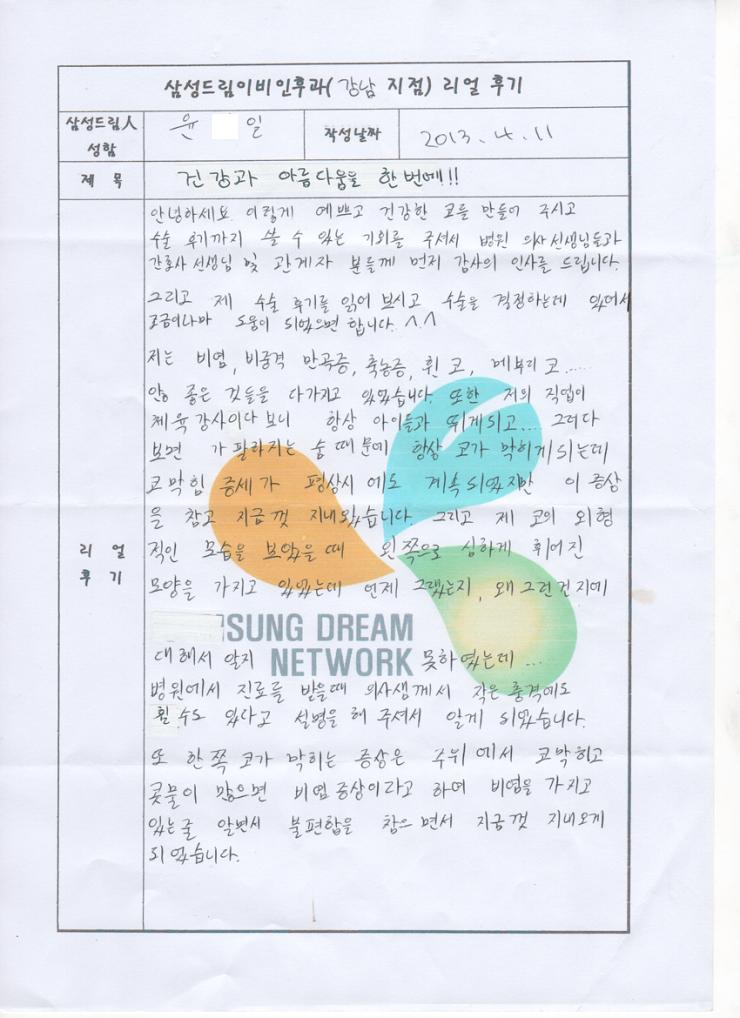 삼성드림이비인후과(강남 지점) 리얼 후기
삼성드림人 성함
윤 일
작성날짜
2013. 4. 11
제 목
건강과 아름다움을 한번에!!
리 얼 후 기
안녕하세요 이렇게 예쁘고 건강한 코를 만들어 주시고
수술 후기까지 쓸 수 있는 기회를 주셔서 병원 의사선생님들과
간호사 선생님 및 관계자 분들께 먼저 감사의 인사를 드립니다.
그리고 제 수술 후기를 읽어 보시고 수술을 결정하는데 있어서
조금이나마 도움이 되었으면 합니다. ^.^
저는 비염, 비중격 만곡증, 축농증, 휜 코, 메부리코.....
안 좋은 것들을 다가지고 있었습니다. 또한 저의 직업이
체육강사이다 보니 항상 아이들과 뛰게되고.... 그러다
보면 가팔라지는 숨 때문에 항상 코가 막히게 되는데
코막힘 증세가 평상시 에도 계속 되었지만 이 증상
을 참고 지금껏 지내왔습니다. 그리고 제 코의 외형
적인 모습을 보았을 때 왼쪽으로 심하게 휘어진
모양을 가지고 있었는데 언제 그랬는지, 왜 그런건지에
SUNG DREAM
NETWORK
대해서 알지 못하였는데 ...
병원에서 진료를 받을때 의사생께서 작은 충격에도
휠 수도 있다고 설명을 해 주셔서 알게 되었습니다.
또 한쪽 코가 막히는 증상은 주위에서 코막히고
콧물이 많으면 비염증상이라고 하여 비염을 가지고
있는줄 알면서 불편함을 참으면서 지금껏 지내오게
되었습니다.